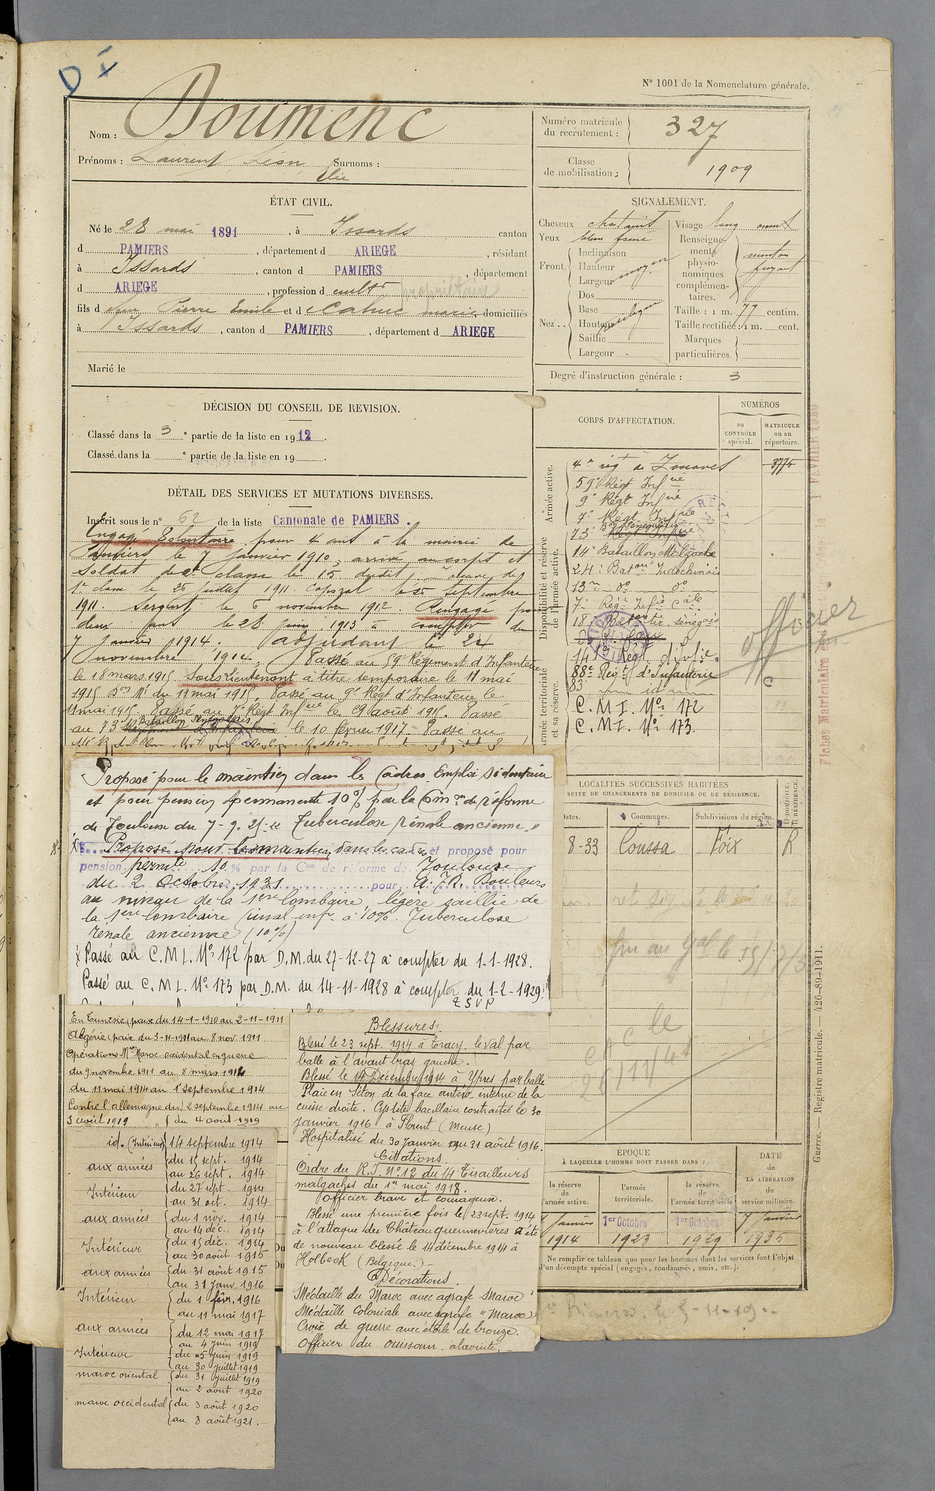 D I
N° 1001 de la Nomenclature générale.
Nom : Doumenc
Prénoms : Laurent Léon Surnoms :
Elie
Numéro matricule du recrutement : 327
Classe de mobilisation : 1909
ÉTAT CIVIL.
Né le 28 mai 1891, à Issards canton
d PAMIERS, département d ARIEGE, résidant
à Issards, canton d PAMIERS, département
d ARIEGE, profession de cultr propriétaire
fils d feu Pierre Emile et d marie domiciliés
à Issards, canton d PAMIERS, département d ARIEGE
Marié le
SIGNALEMENT.
Cheveux chatains
Yeux bleu
Front. Inclinaison
Hauteur moyen
Largeur
Nez . . Dos
Base
Hauteur
Saillie
Largeur
Visage long
Renseignements physionomiques complémentaires. menton fuyant
Taille : 1 m. 77 centim.
Taille rectifiée : 1 m. cent.
Marques particulières.
Degré d'instruction générale : 3
DÉCISION DU CONSEIL DE REVISION.
Classé dans la 3e partie de la liste en 1912.
Classé dans la e partie de la liste en 19
DÉTAIL DES SERVICES ET MUTATIONS DIVERSES.
Inscrit sous le n° 62 de la liste Cantonale de PAMIERS.
Engagé Volontaire pour 4 ans à la mairie de
Pamiers le 7 Janvier 1910, arrivé au corps et
Soldat de 2e classe le 15 dudit,
1re classe le 26 juillet 1911. Caporal le 25 Septembre
1911. Sergent le 6 novembre 1912. Rengagé pour
deux ans le 28 juin 1913 à compter du
7 Janvier 1914. Adjudant le 24
novembre 1914. Passé au 59e Régiment d'Infanterie
le 18 mars 1915. Sous Lieutenant à titre temporaire le 11 mai
1915 Don Mle du 11 mai 1915. Passé au 9e Régt d'Infanterie le
11 mai 1915. Passé au 7e Régt Infrie le 9 août 1915. Passé
au 73 Bataillon Sénégalais le 10 février 1917. Passé au
CORPS D'AFFECTATION.
NUMÉROS
AU CONTRÔLE spécial.
MATRICULE ou au répertoire.
Armée active.
Disponibilité et réserve de l'armée active.
Armée territoriale et sa réserve.
4e régt de Zouaves 3775
59e Régt Infrie
9e Régt Infrie
7e Régt Infrie
73
14e Bataillon Malgache
24e Baton Indochinois
13e do do
7e Régt Infie Cale
18
14e Régt
88e Régt d'Infanterie
83
C. M. I. No: 172
C. M. I. No: 173.
officier
Proposé pour le maintien dans les Cadres Emploi Sédentaire
et pour pension permanente 10% par la Com on de réforme
de Toulouse du 7-9-25 "Tuberculose rénale ancienne"
Proposé pour le maintien dans le cadre et proposé pour
pension permte 10 % par la Con de réforme de Toulouse
du 2 Octobre 1931 pour
au niveau de la 1ère lombaire, légère saillie de
la 1ère lombaire inval. inf. à 10%. Tuberculose
rénale ancienne (10%)
Passé au C. M. I. No: 172 par D.M. du 27-12-27 à compter du 1-1-1928.
Passé au C. M. I. No: 173 par D.M. du 14-11-1928 à compter du 1-2-1929.
T.S.V.P
LOCALITÉS SUCCESSIVES HABITÉES
SUITE DE CHANGEMENTS DE DOMICILE OU DE RÉSIDENCE.
Dates.
Communes.
Subdivisions de région.
D DOMICILE. R RÉSIDENCE.
8-33 Coussa Foix R
En Tunisie, paix du 14-1-1910 au 2-11-1911
Algérie, paix du 3-11-1911 au 8 nov 1911
Opérations Mre Maroc occidental en guerre
du 9 novembre 1911 au 8 mars 1914
du 11 mai 1914 au 1 septembre 1914
Contre l'Allemagne du 2 septembre 1914 au
3 août 1919
du 4 août 1919
id. (Intérieur) 14 septembre 1914
aux armées du 15 sept. 1914
au 26 sept. 1914
Intérieur du 27 sept. 1914
au 31 oct. 1914
aux armées du 1 nov. 1914
au 14 déc. 1914
Intérieur du 15 déc. 1914
au 30 août 1915
aux armées du 31 août 1915
au 31 Janv. 1916
Intérieur du 1 fév. 1916
au 11 mai 1917
aux armées du 12 mai 1917
au 4 Juin 1919
Intérieur du 5 juin 1919
au 30 juillet 1919
maroc oriental du 31 juillet 1919
au 2 août 1920
maroc occidental du 3 août 1920
au 8 août 1921.
Blessures.
Blessé le 23 sept. 1914 à Tracy le Val par
balle à l'avant bras gauche.
Blessé le 14 Décembre 1914 à Ypres par balle
Plaie en Séton de la face antéro interne de la
cuisse droite. Cystite bacillaire contractée le 30
Janvier 1916 à Florent (Meuse)
Hospitalisé du 30 Janvier au 31 août 1916.
Citations
Ordre du R.I. No 12 du 14e Tirailleurs
malgaches du 1er mai 1918.
Officier brave et courageux.
Blessé une première fois le 23 sept. 1914
à l'attaque du Château quennevières a été
de nouveau blessé le 14 décembre 1914 à
Holbeck (Belgique).
Décorations.
Médaille du Maroc avec agrafe Maroc
Médaille Coloniale avec agrafe "Maroc"
Croix de guerre avec étoile de bronze.
Officier du ouissam alaouite.
ÉPOQUE
À LAQUELLE L'HOMME DOIT PASSER DANS :
la réserve de l'armée active.
l'armée territoriale.
la réserve de l'armée territoriale
DATE de LA LIBÉRATION du service militaire.
7 Janvier 1914
1er Octobre 1923
1er Octobre 1929
7 Janvier 1935
Ne remplir ce tableau que pour les hommes dont les services font l'objet
d'un décompte spécial (engagés, condamnés, omis, etc.).
Guerre. — Registre matricule. — 426-89-1911.